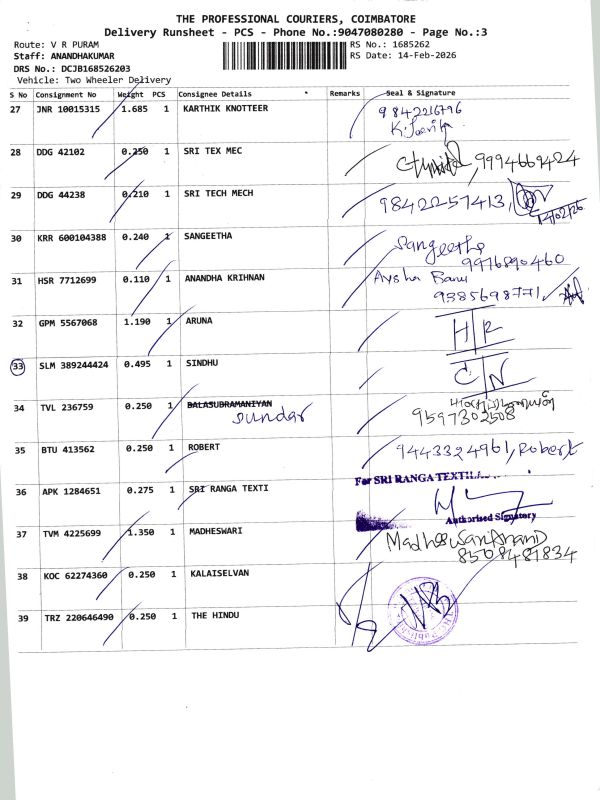 THE PROFESSIONAL COURIERS, COIMBATORE
Delivery Runsheet - PCS - Phone No.:9047080280 - Page No.:3
Route: V R PURAM RS No.: 1685262
Staff: ANANDHAKUMAR RS Date: 14-Feb-2026
DRS No.: DCJB168526203
Vehicle: Two Wheeler Delivery
S No Consignment No Weight PCS Consignee Details Remarks Seal & Signature
27 JNR 10015315 1.685 1 KARTHIK KNOTTEER 9842216796
28 DDG 42102 0.250 1 SRI TEX MEC ,9994669424
29 DDG 44238 0.210 1 SRI TECH MECH 9842257413,
14/02/26
30 KRR 600104388 0.240 1 SANGEETHA Sangeetha
9976890460
31 HSR 7712699 0.110 1 ANANDHA KRIHNAN Aysha Banu
9385698771
32 GPM 5567068 1.190 1 ARUNA H/R
33 SLM 389244424 0.495 1 SINDHU C/N
34 TVL 236759 0.250 1 BALASUBRAMANIYAN
sundar 9597302508
35 BTU 413562 0.250 1 ROBERT 9443324961, Robert
36 APK 1284651 0.275 1 SRI RANGA TEXTI For SRI RANGA TEXTILE
Authorised Signatory
37 TVM 4225699 1.350 1 MADHESWARI Madheswari Anand
8508481834
38 KOC 62274360 0.250 1 KALAISELVAN
39 TRZ 220646490 0.250 1 THE HINDU